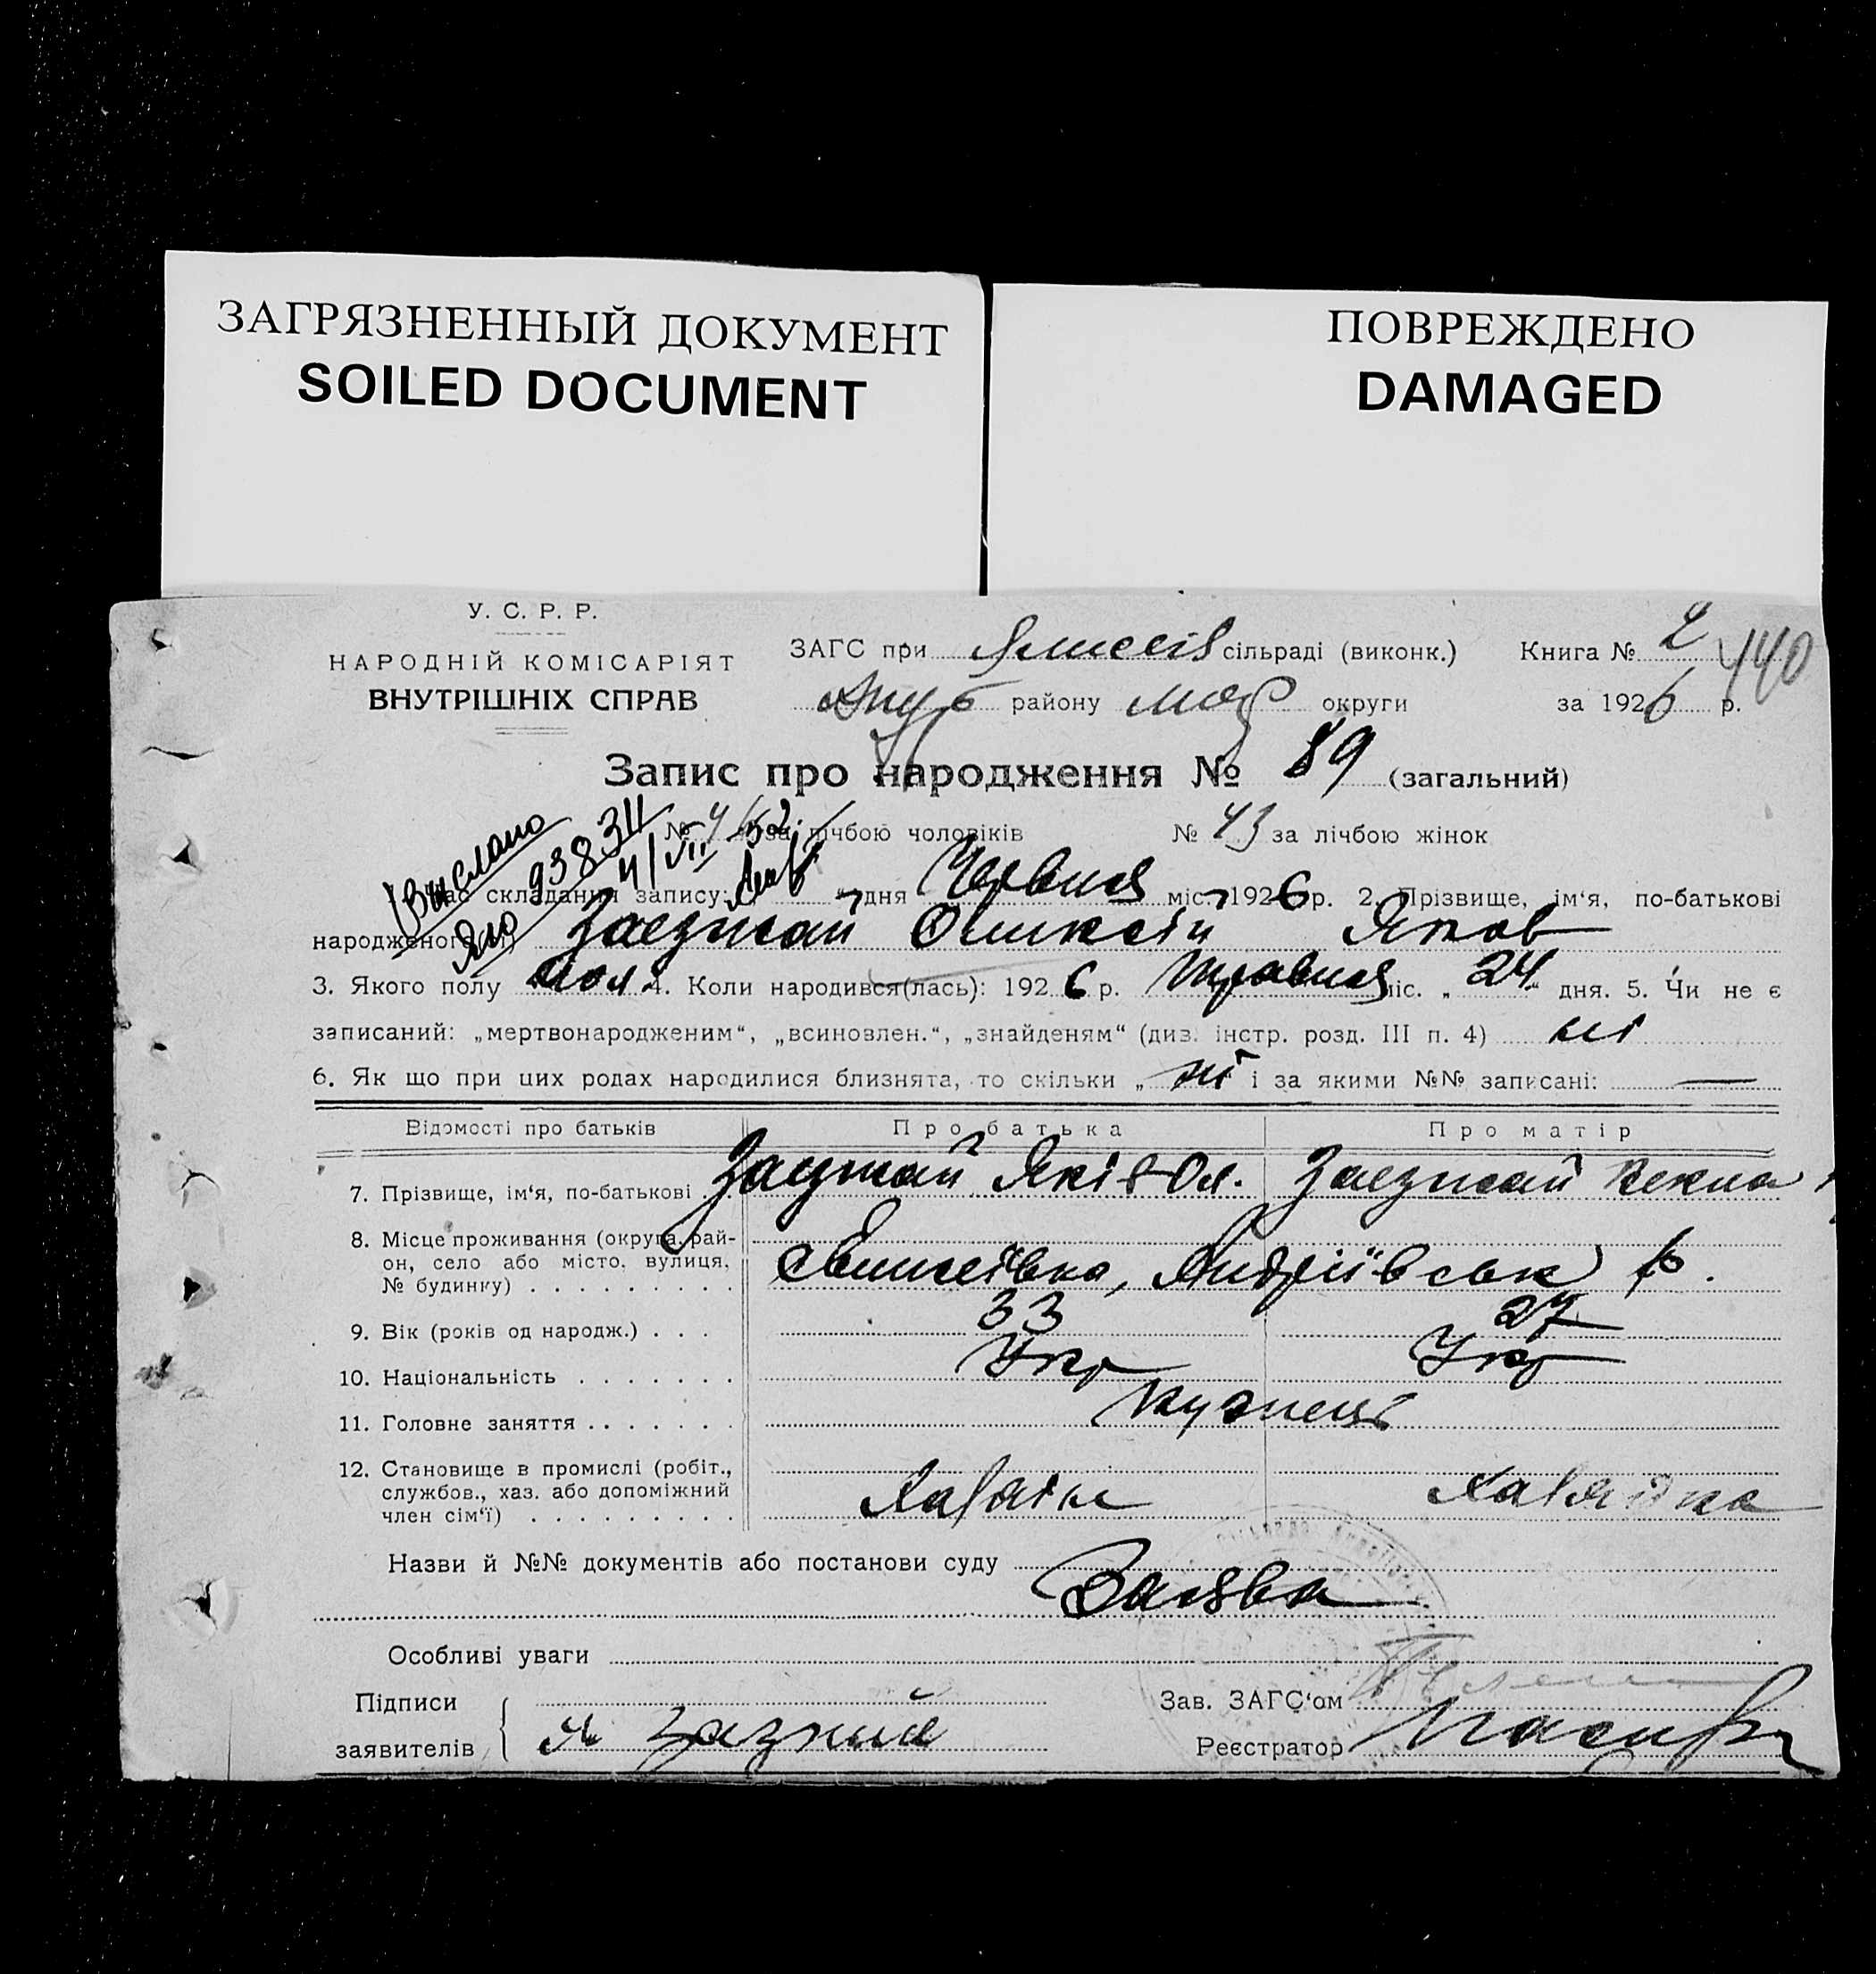 ЗАГРЯЗНЕННЫЙ ДОКУМЕНТ
SOILED DOCUMENT
ПОВРЕЖДЕНО
DAMAGED
У. С. Р. Р.
НАРОДНІЙ КОМІСАРІЯТ
ВНУТРІШНІХ СПРАВ
ЗАГС при сільраді (виконк.) Книга № 2
району округи за 1926 р.
440
Запис про народження № 89 (загальний)
№ за лічбою чоловіків № 43 за лічбою жінок
Выслано
938311
час складання запису: 7 дня Червня міс. 1926 р. 2. Прізвище, ім'я, по-батькові
народженого(ї)
3. Якого полу 4. Коли народився(лась): 1926 р. Травня міс. „24“ дня. 5. Чи не є
записаний: „мертвонародженим“, „всиновлен.“, „знайденям“ (диз. інстр. розд. III п. 4) ні
6. Як що при цих родах народилися близнята, то скільки „ ні і за якими №№ записані: —
Відомості про батьків Про батька Про матір
7. Прізвище, ім'я, по-батькові Яків Ол.
8. Місце проживання (округа, рай-
он, село або місто, вулиця,
№ будинку) . . . . . . . . . Андріївськ р.
9. Вік (років од народж.) . . . 33 27
10. Національність . . . . . . . Укр Укр
11. Головне заняття . . . . . . Кузнець
12. Становище в промислі (робіт.,
службов., хаз. або допоміжний
член сім'ї) . . . . . . . . . Хазяїн Хазяйка
Назви й №№ документів або постанови суду Заява
Особливі уваги
Підписи
заявителів
Зав. ЗАГС'ом
Реєстратор